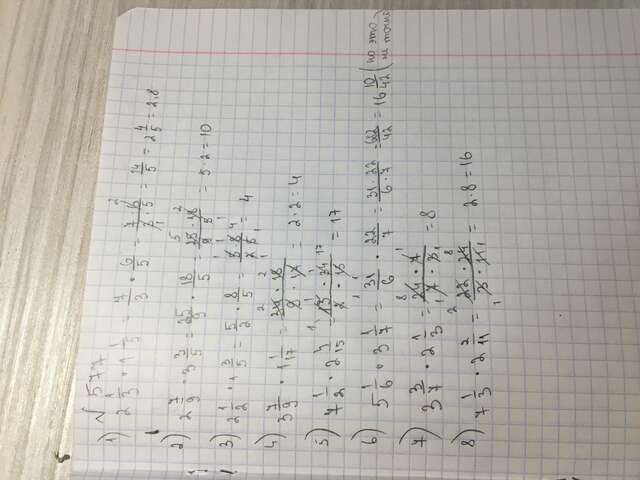 √ 577
1) 2 1/3 · 1 1/5 = 7/3 · 6/5 = 7·6/3·5 = 14/5 = 2 4/5 = 2,8
2) 2 7/9 · 3 3/5 = 25/9 · 18/5 = 25·18/9·5 = 5·2 = 10
3) 2 1/2 · 1 3/5 = 5/2 · 8/5 = 5·8/2·5 = 4
4) 3 7/9 · 1 1/17 = 34·18/9·17 = 2·2 = 4
5) 7 1/2 · 2 4/15 = 15·34/2·15 = 17
6) 5 1/6 · 3 1/7 = 31/6 · 22/7 = 31·22/6·7 = 682/42 = 16 10/42 (но это не точно)
7) 3 3/7 · 2 1/3 = 24·7/7·3 = 8
8) 7 1/3 · 2 2/11 = 22·24/3·11 = 2·8 = 16